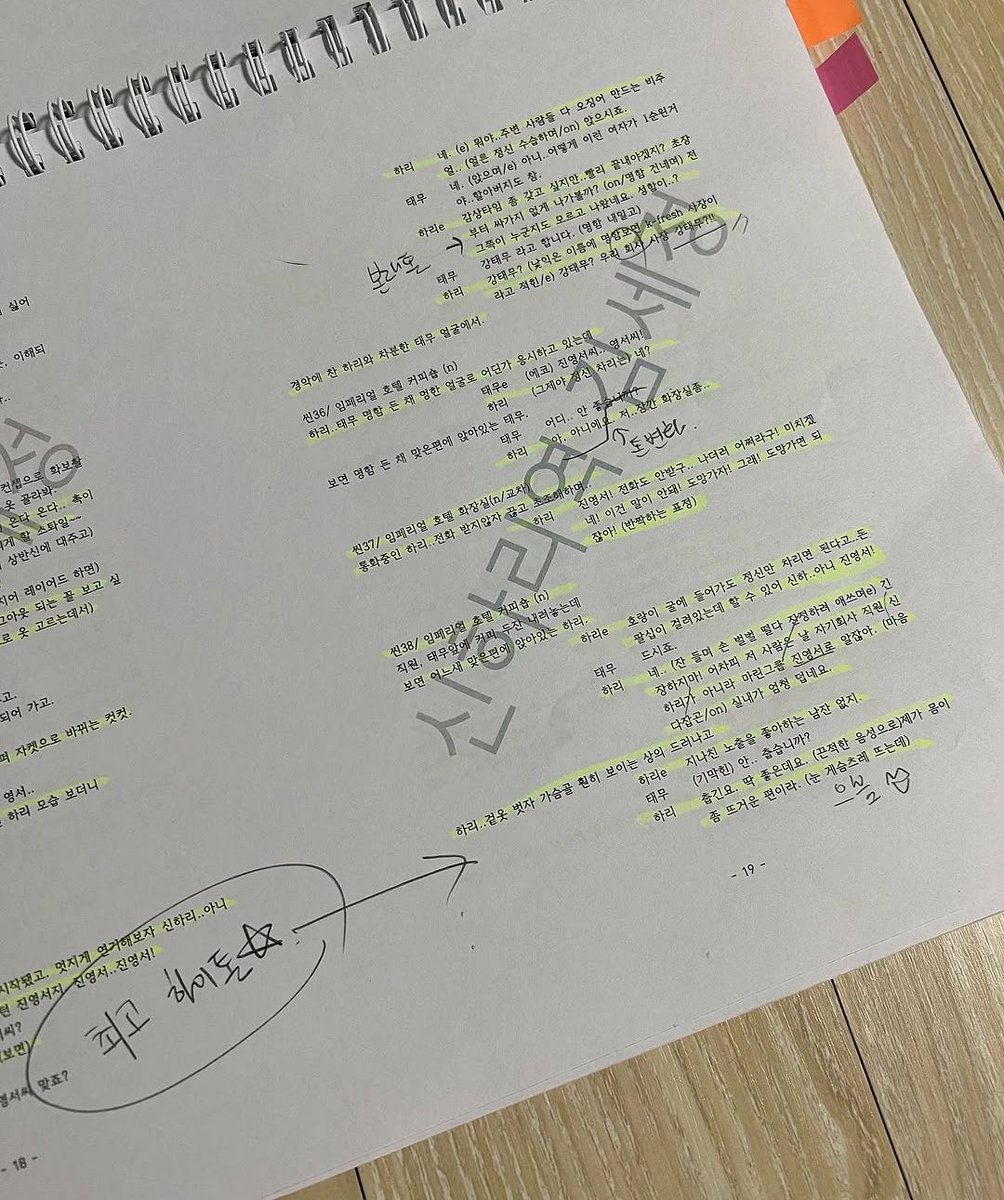 싶어
. 이해되
컨셉으로 화보촬
옷 골라봐.
온다 온다.. 촉이
게 할 스타일~~
상반신에 대주고)
지어 레이어드 하면)
그아웃 되는 꼴 보고 싶
로 옷 고르는데서)
고.
되어 가고.
며 자켓으로 바뀌는 컷컷.
영서..
하리 모습 보더니
시작됐고. 멋지게 연기해보자 신하리..아니
턴 진영서지. 진영서..진영서!
씨?
보면)
영서씨 맞죠?
최고 하이톤☆
- 18 -
하리 네. (e) 뭐야..주변 사람들 다 오징어 만드는 비주
얼.. (얼른 정신 수습하며/on) 앉으시죠.
태무 네. (앉으며/e) 아니..어떻게 이런 여자가 1순위거
야..할아버지도 참.
하리e 감상타임 좀 갖고 싶지만..빨리 끝내야겠지? 초장
부터 싸가지 없게 나가볼까? (on/명함 건네며) 전
그쪽이 누군지도 모르고 나왔네요. 성함이..?
본래톤 →
태무 강태무 라고 합니다. (명함 내밀고)
하리 강태무? (낯익은 이름에 명함보면 k-fresh 사장이
라고 적힌/e) 강태무? 우리 회사 사장 강태무?!!
경악에 찬 하리와 차분한 태무 얼굴에서.
씬36/ 임페리얼 호텔 커피숍 (n)
하리..태무 명함 든 채 멍한 얼굴로 어딘가 응시하고 있는데
태무e (에코) 진영서씨.. 영서씨!
하리 (그제야 정신 차리는) 네?
보면 명함 든 채 맞은편에 앉아있는 태무.
태무 어디.. 안 좋습니까?
하리 아. 아니에요. 저..잠깐 화장실좀..
↑톤변화.
씬37/ 임페리얼 호텔 화장실(n/교차)
통화중인 하리..전화 받지않자 끊고 초조해하며..
하리 진영서! 전화도 안받구.. 나더러 어쩌라구! 미치겠
네! 이건 말이 안돼! 도망가자! 그래! 도망가면 되
잖아! (반짝하는 표정)
씬38/ 임페리얼 호텔 커피숍 (n)
직원, 태무앞에 커피 두잔 내려놓는데
보면 어느새 맞은편에 앉아있는 하리.
하리e 호랑이 굴에 들어가도 정신만 차리면 된다고..돈
팔십이 걸려있는데 할 수 있어 신하..아니 진영서!
태무 드시죠.
하리 네.. (잔 들며 손 벌벌 떨다 진정하려 애쓰며e) 긴
장하지마! 어차피 저 사람은 날 자기회사 직원 신
하리가 아니라 마린그룹 진영서로 알잖아. (마음
다잡곤/on) 실내가 엄청 덥네요.
하리..겉옷 벗자 가슴골 훤히 보이는 상의 드러나고
하리e 지나친 노출을 좋아하는 남잔 없지.
태무 (기막힌) 안.. 춥습니까?
하리 춥긴요. 딱 좋은데요. (끈적한 음성으로)제가 몸이
좀 뜨거운 편이라. (눈 게슴츠레 뜨는데)
- 19 -
신하리역 김세정